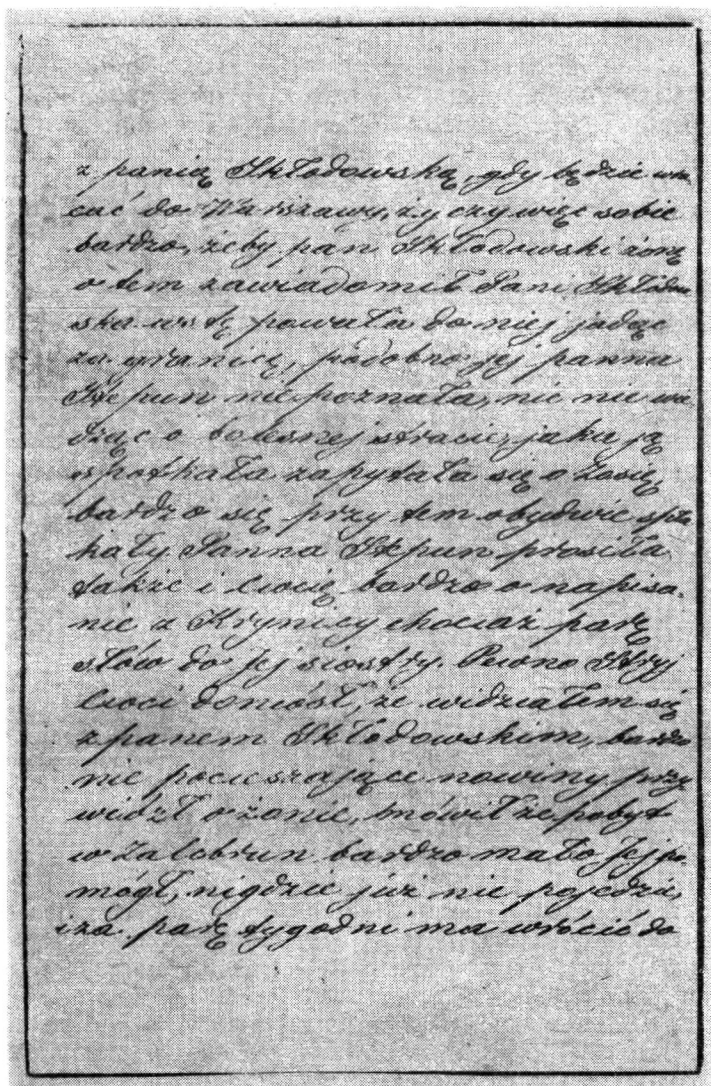 z panią Skłodowską, gdy będzie wra
cać do Warszawy, życzy więc sobie
bardzo, żeby pan Skłodowski żonę
o tem zawiadomił Pani Skłodow
ska wstępowała do niej jadąc
za granicę, podobno jej panna
Stepun nie poznała, nic nie wie
dząc o bolesnej stracie, jaka ją
spotkała zapytała się o Zosię,
bardzo się przy tem obydwie spła
kały Panna Stepun prosiła
także i Ciocię bardzo o napisa.
nie z Krynicy chociaż parę
słów do Jej siostry. Pewno Stryj
Cioci doniósł, że widziałem się
z panem Skłodowskim, bardzo
nie pocieszające nowiny przy
wiózł o żonie, mówił że pobyt
w Salcbrun bardzo mało Jej po
mógł, nigdzie już nie pojedzie,
i za parę tygodni ma wrócić do